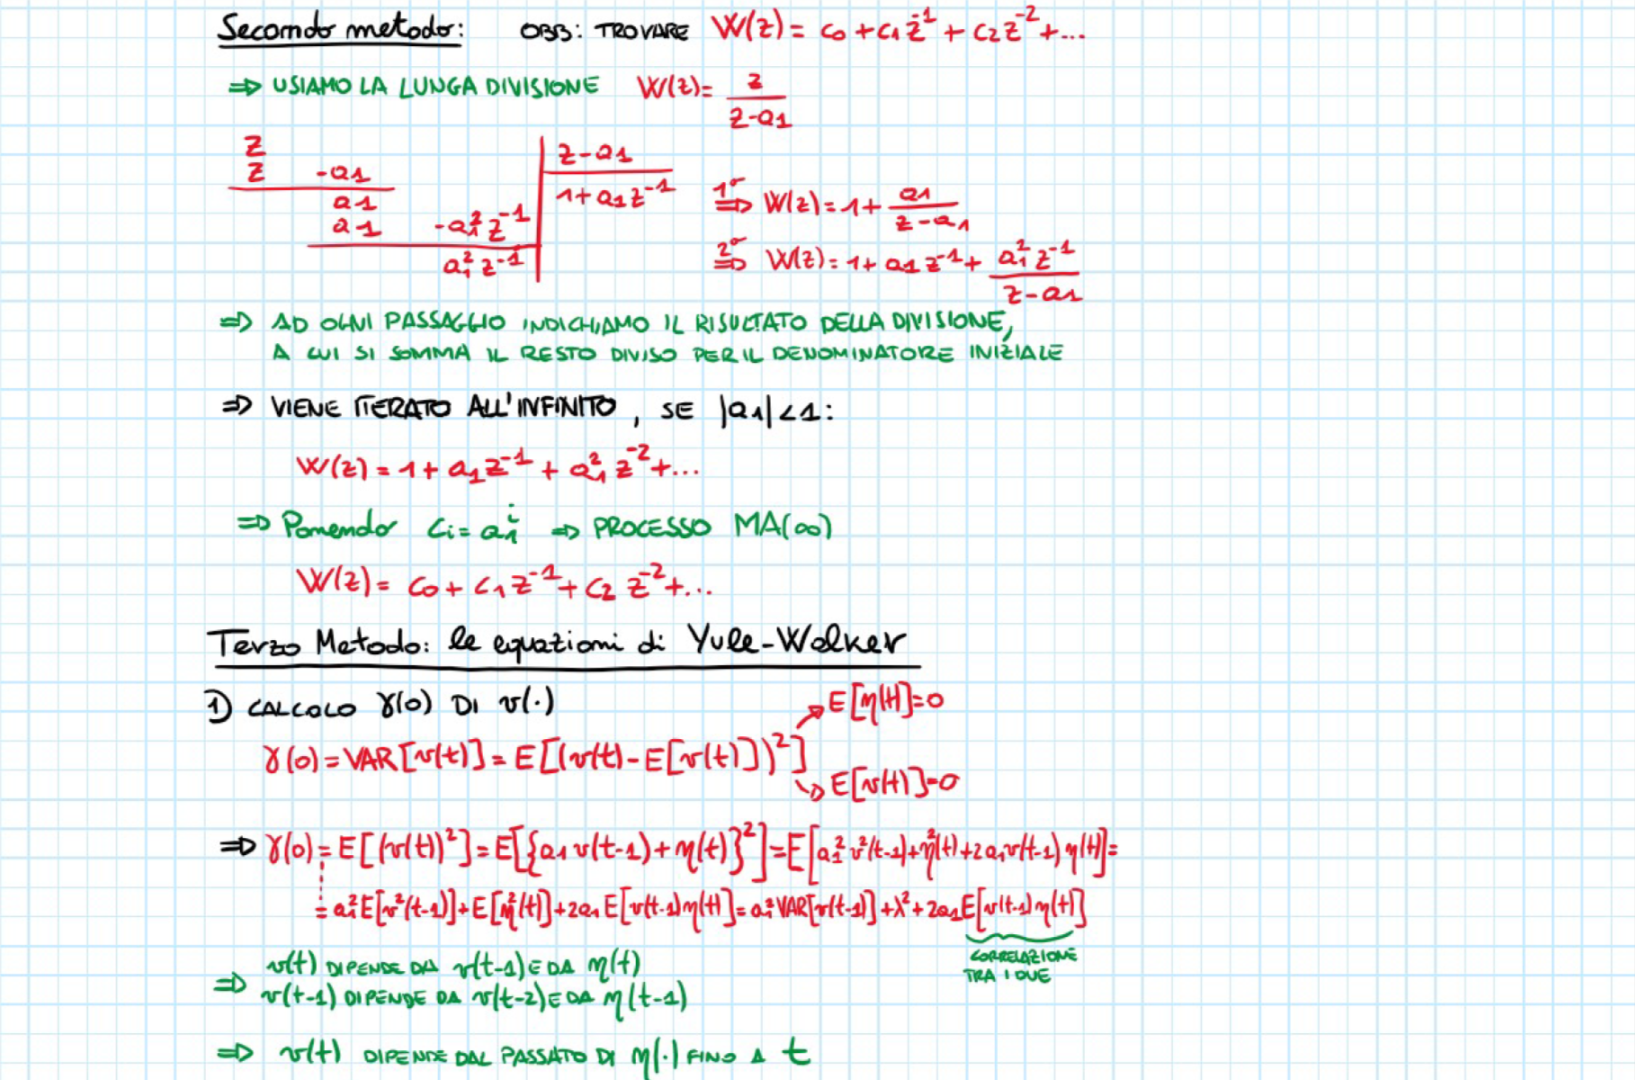 Secondo metodo: OBB: TROVARE W(z) = c₀ + c₁z⁻¹ + c₂z⁻² + ...
⇒ USIAMO LA LUNGA DIVISIONE W(z) = z / (z-a₁)
z | z-a₁
z -a₁ | 1 + a₁z⁻¹
a₁
a₁ -a₁²z⁻¹
a₁²z⁻¹
1° ⇒ W(z) = 1 + a₁ / (z-a₁)
2° ⇒ W(z) = 1 + a₁z⁻¹ + a₁²z⁻¹ / (z-a₁)
⇒ AD OGNI PASSAGGIO INDICHIAMO IL RISULTATO DELLA DIVISIONE,
A CUI SI SOMMA IL RESTO DIVISO PER IL DENOMINATORE INIZIALE
⇒ VIENE ITERATO ALL'INFINITO, SE |a₁| < 1:
W(z) = 1 + a₁z⁻¹ + a₁²z⁻² + ...
⇒ Ponendo cᵢ = a₁ⁱ ⇒ PROCESSO MA(∞)
W(z) = c₀ + c₁z⁻¹ + c₂z⁻² + ...
Terzo Metodo: le equazioni di Yule-Walker
1) CALCOLO γ(0) DI v(·)
γ(0) = VAR[v(t)] = E[(v(t) - E[v(t)])²]
→ E[η(t)] = 0
→ E[v(t)] = 0
⇒ γ(0) = E[(v(t))²] = E[{a₁v(t-1) + η(t)}²] = E[a₁²v²(t-1) + η²(t) + 2a₁v(t-1)η(t)] =
= a₁²E[v²(t-1)] + E[η²(t)] + 2a₁E[v(t-1)η(t)] = a₁²VAR[v(t-1)] + λ² + 2a₁E[v(t-1)η(t)]
CORRELAZIONE
TRA I DUE
⇒ v(t) DIPENDE DA v(t-1) E DA η(t)
v(t-1) DIPENDE DA v(t-2) E DA η(t-1)
⇒ v(t) DIPENDE DAL PASSATO DI η(·) FINO A t